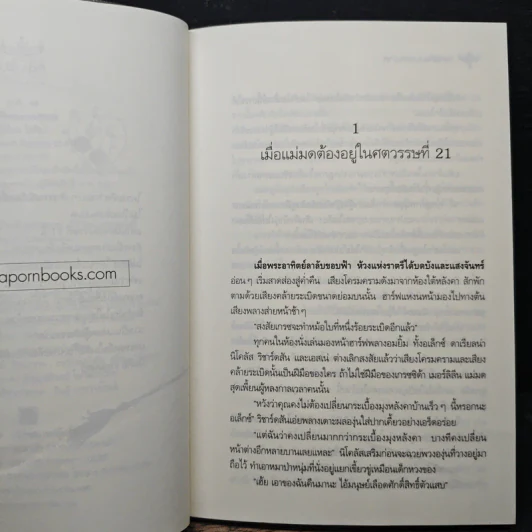 apornbooks.com
1
เมื่อแม่มดต้องอยู่ในศตวรรษที่ 21
เมื่อพระอาทิตย์ลาลับขอบฟ้า ห้วงแห่งราตรีได้บดบังและแสงจันทร์
อ่อนๆ เริ่มสาดส่องสู่ค่ำคืน เสียงโครมครามดังมาจากห้องใต้หลังคา สักพัก
ตามด้วยเสียงคล้ายระเบิดขนาดย่อมบนนั้น ฮาร์ฟแหงนหน้ามองไปทางต้น
เสียงพลางส่ายหน้าช้าๆ
"สงสัยเกรซจะทำหม้อใบที่หนึ่งร้อยระเบิดอีกแล้ว"
ทุกคนในห้องนั่งเล่นมองหน้าฮาร์ฟพลางอมยิ้ม ทั้งอเล็กซ์ ดาเรียลน่า
นิโคลัส ริชาร์ดสัน และเอสเน่ ต่างเลิกสงสัยแล้วว่าเสียงโครมครามและเสียง
คล้ายระเบิดนั้นเป็นฝีมือของใคร ถ้าไม่ใช่ฝีมือของเกรซซิต้า เมอร์ลิลีน แม่มด
สุดเพี้ยนผู้หลงกาลเวลาคนนั้น
"หวังว่าคุณคงไม่ต้องเปลี่ยนกระเบื้องมุงหลังคาบ้านเร็วๆ นี้หรอกนะ
อเล็กซ์" ริชาร์ดสันเอ่ยพลางเดาะผลองุ่นใส่ปากเคี้ยวอย่างเอร็ดอร่อย
"แต่ฉันว่าคงเปลี่ยนมากกว่ากระเบื้องมุงหลังคา บางทีคงเปลี่ยน
หน้าต่างอีกหลายบานเลยแหละ" นิโคลัสเสริมก่อนจะฉวยพวงองุ่นที่วางอยู่มา
ถือไว้ ทำเอาหมาป่าหนุ่มที่นั่งอยู่แยกเขี้ยวขู่เหมือนเด็กหวงของ
"เฮ้ย เอาของฉันคืนมานะ ไอ้มนุษย์เลือดศักดิ์สิทธิ์ตัวแสบ"